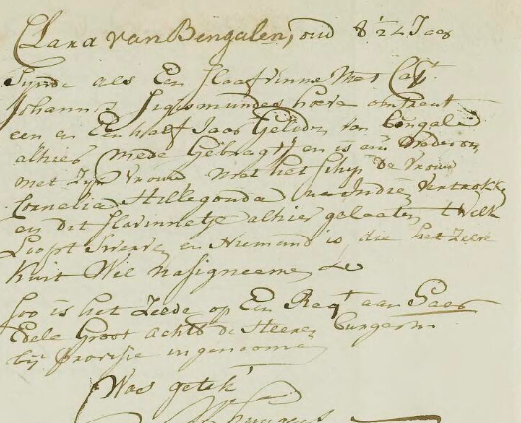 Clara van Bengalen, oud 8 1/2 Jaar
Zynde als Een slaafvinne Met Capt.
Johannes Sigismundus hoeve omtrent
een en Een half Jaar Geleden van Bengale
alhier mede Gebragt, en is en
Met Zyn Vrouw Met het schip De Vrouw
Cornelia Hillegonda na Indie vertrokke
en dit slavinnetje alhier gelaeten t Welk
Loopt en Niemand is, die het Zelve
Wil
Soo is het Zelve op Een Reqt aan Haer
Edele Groot achtb de Heeren Burgerm
bij provisie ingenoomen
Was getek